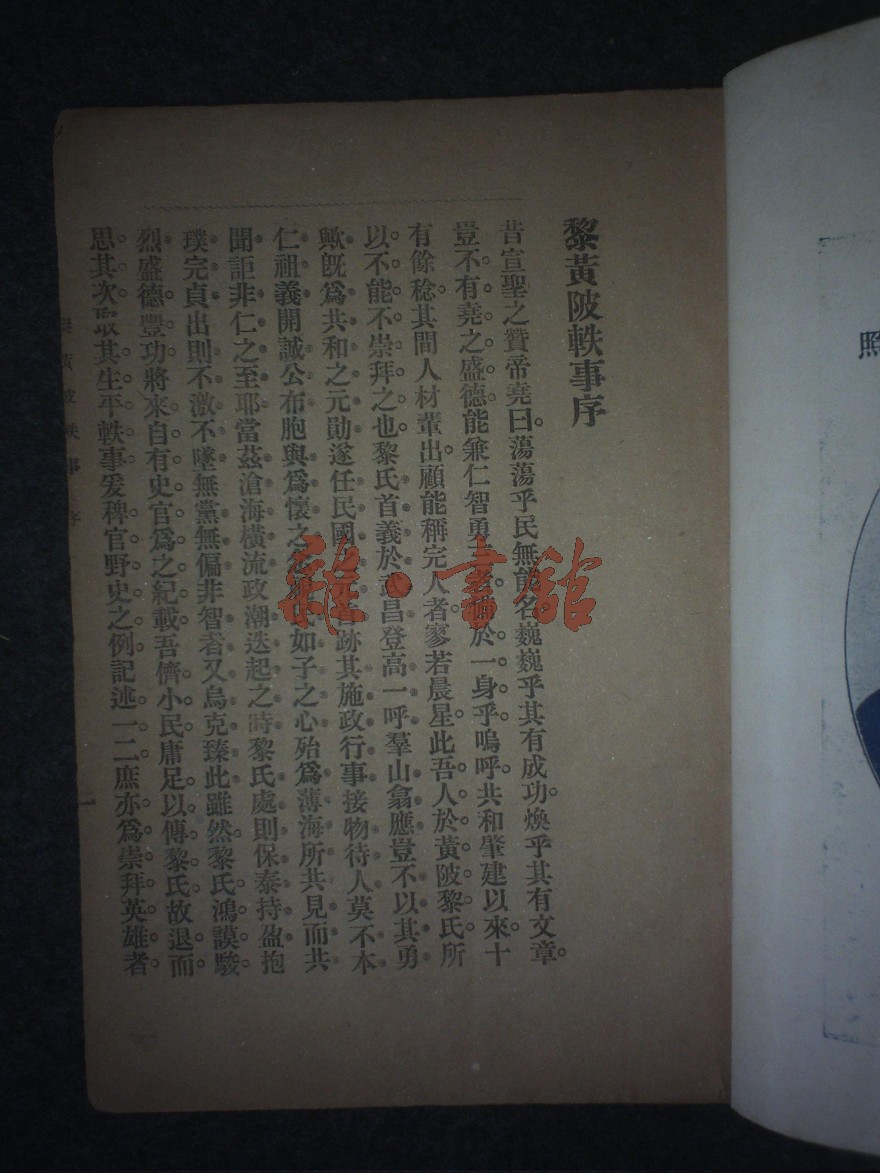 黎黃陂軼事序
昔宣聖之贊帝堯曰。蕩蕩乎民無能名巍巍乎其有成功煥乎其有文章。
豈不有堯之盛德能兼仁智勇於一身乎嗚呼共和肇建以來。十
有餘稔其間人材輩出顧能稱完人者寥若晨星。此吾人於黃陂黎氏所
以不能不崇拜之也黎氏首義於武昌登高一呼羣山翕應豈不以其勇
歟旣爲共和之元勛遂任民國跡其施政行事接物待人莫不本
仁祖義開誠公布胞與爲懷之如子之心殆爲薄海所共見而共
聞詎非仁之至耶當茲滄海橫流政潮迭起之時黎氏處則保泰持盈抱
璞完貞出則不激不墜無黨無偏非智者又烏克臻此雖然黎氏鴻謨駿
烈盛德豐功將來自有史官爲之紀載吾儕小民庸足以傳黎氏故退而
思其次。取其生平軼事爰稗官野史之例記述一二庶亦爲崇拜英雄者
黎黃陂軼事 序
一
雜·書館
照